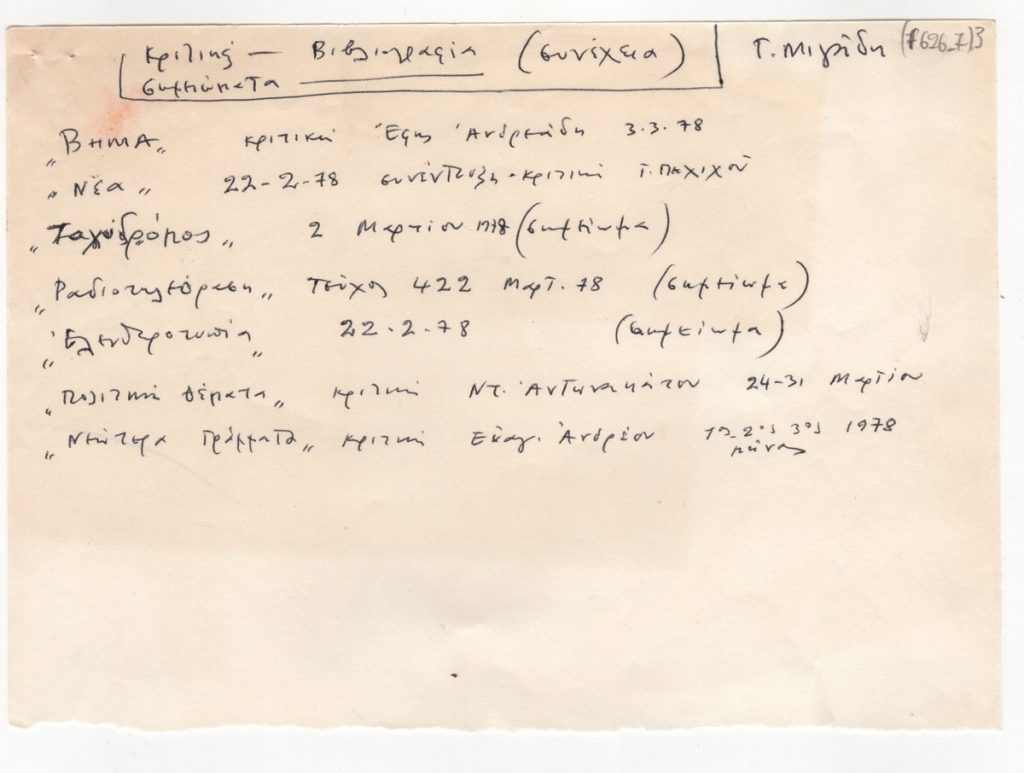 Κριτικές — Βιβλιογραφία (συνέχεια) Γ. Μιγάδη
σημειώματα
„ΒΗΜΑ„ κριτική Έφης Ανδρεάδη 3.3.78
„Νέα„ 22-2-78 συνέντευξη-κριτική Γ. Πηχιχού
„Ταχυδρόμος„ 2 Μαρτίου 1978 (σημείωμα)
„Ραδιοτηλεόραση„ Τεύχος 422 Μαρτ. 78 (σημείωμα)
„Ελευθεροτυπία„ 22.2.78 (σημείωμα)
„Πολιτικά Θέματα„ κριτική Ντ. Αντωνακάτου 24-31 Μαρτίου
„Νεώτερα Γράμματα„ κριτική Ευαγ. Ανδρέου 1ος 2ος 3ος 1978
μήνας